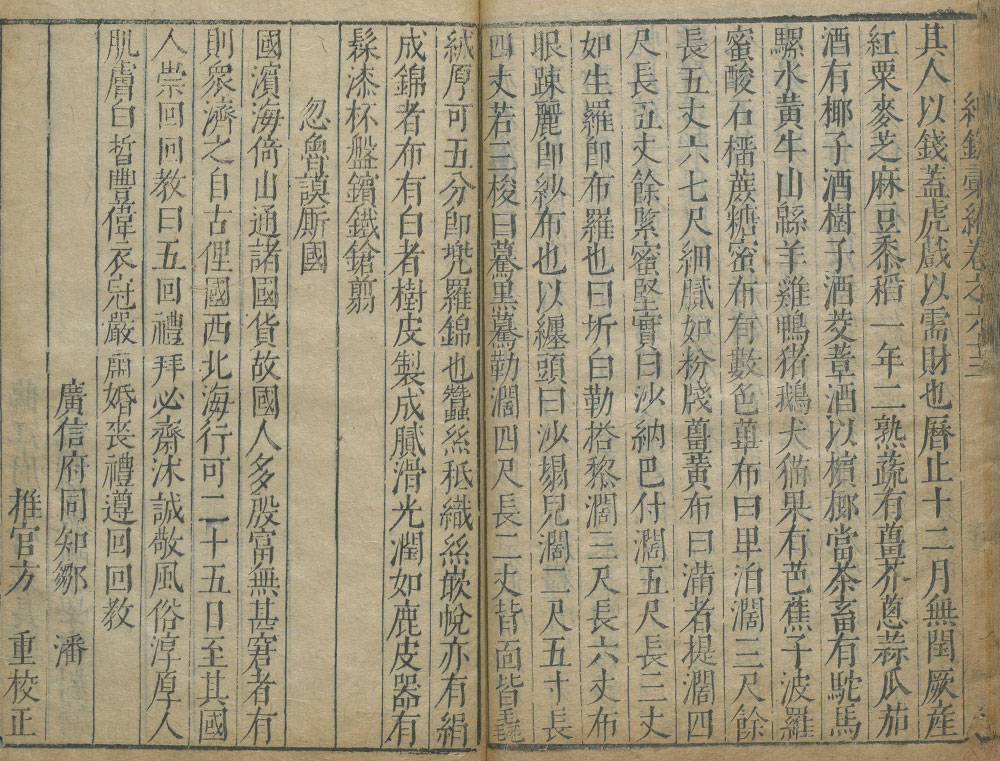 紀錄彙編卷之六十三
其人以錢蓋虎戲以需財也曆止十二月無閏厥産
紅粟麥芝麻豆黍稻一年二熟蔬有薑芥蔥蒜瓜茄
酒有椰子酒樹子酒茭蔁酒以檳榔當茶畜有駝馬
騾水黃牛山緜羊雞鴨猪鵝犬猫果有芭蕉子波羅
蜜酸石橊蔗糖蜜布有數色蓽布曰甲泊濶三尺餘
長五丈六七尺細膩如粉牋薑黃布曰滿者提濶四
尺長五丈餘緊蜜堅實曰沙納巴付濶五尺長三丈
如生羅卽布羅也曰圻白勒搭黎濶三尺長六丈布
眼踈麗卽紗布也以纏頭曰沙塌兒濶二尺五寸長
四丈若三梭曰驀黑驀勒濶四尺長二丈皆面皆毳
絨厚可五分卽兜羅錦也蠶絲秪織絲嵌帨亦有絹
成錦者布有白者樹皮製成膩滑光潤如鹿皮器有
髹漆杯盤鑌鐵鎗翦
忽魯謨厮國
國濱海倚山通諸國貨故國人多殷富無甚窘者有
則眾濟之自古俚國西北海行可二十五日至其國
人崇回回教曰五回禮拜必齋沐誠敬風俗淳厚人
肌膚白晳豐偉衣冠嚴肅婚喪禮遵回回教
廣信府同知鄒 潘
推官方 重校正